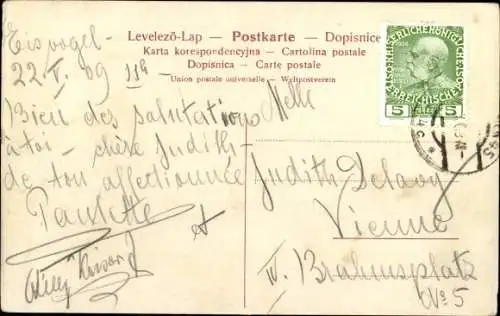 Levelező-Lap — Postkarte — Dopisnice
Karta korespondencyjna — Cartolina postale
Dopisnica — Carte postale
Union postale universelle — Weltpostverein
KAISERLICHE KÖNIGLICHE
ÖSTERREICHISCHE POST
5 5
Eisvogel
22. V. 09
Bien des salutations
à toi — chère Judith
de ton affectionnée
Paulette
et
Willy
Melle
Judith Delavy
Vienne
IV. Brahmsplatz
No 5